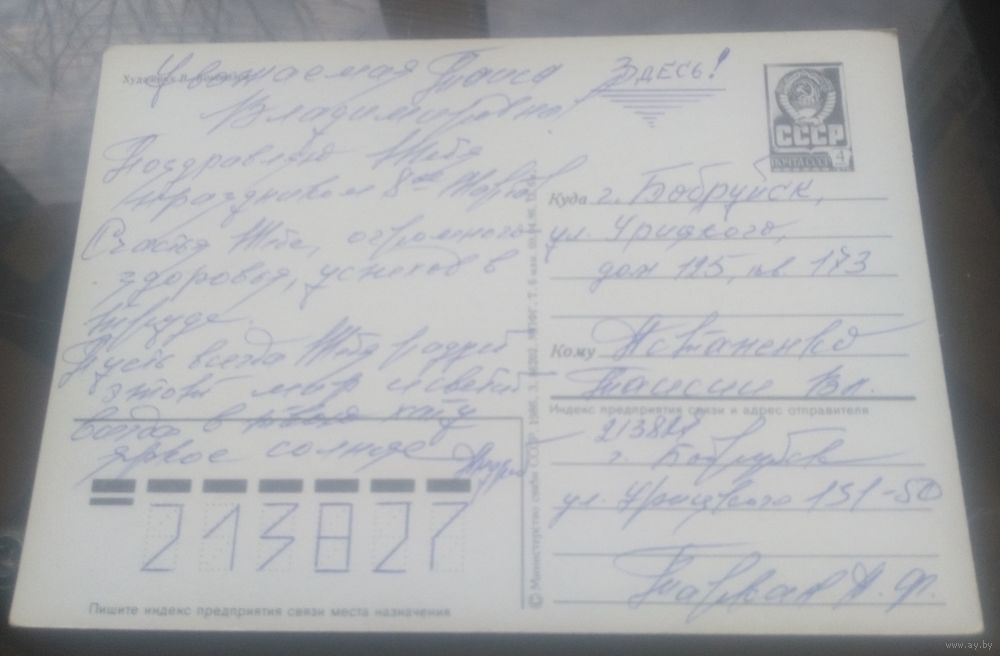 Художник В.
Уважаемая Таиса
Владимировна!
Поздравляю Тебя
праздником 8ое Марта
Счастья Тебе, огромного
здоровья, успехов в
труде.
Пусть всегда Тебя радует
этот мир и светит
всегда в твою хату
яркое солнце
213827
Пишите индекс предприятия связи места назначения
© Министерство связи СССР. 1985.
Здесь!
СССР
ПОЧТА СССР
4
Куда г. Бобруйск,
ул. Урицкого,
дом 125, кв. 173
Кому
Таисии Вл.
Индекс предприятия связи и адрес отправителя
213827
г. Бобруйск
ул. Урицкого 131-50
www.ay.by